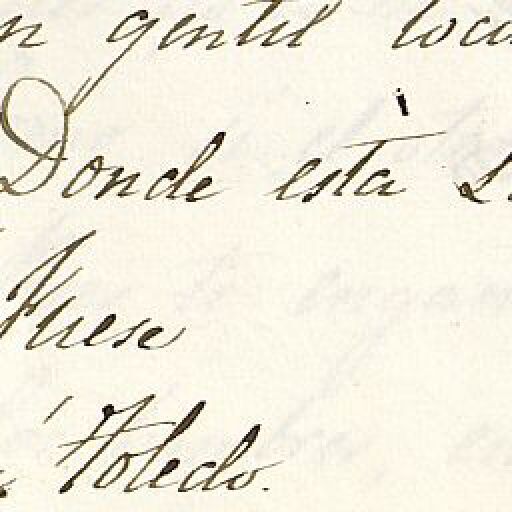 n gentil
Donde està
Fuese
Toledo.